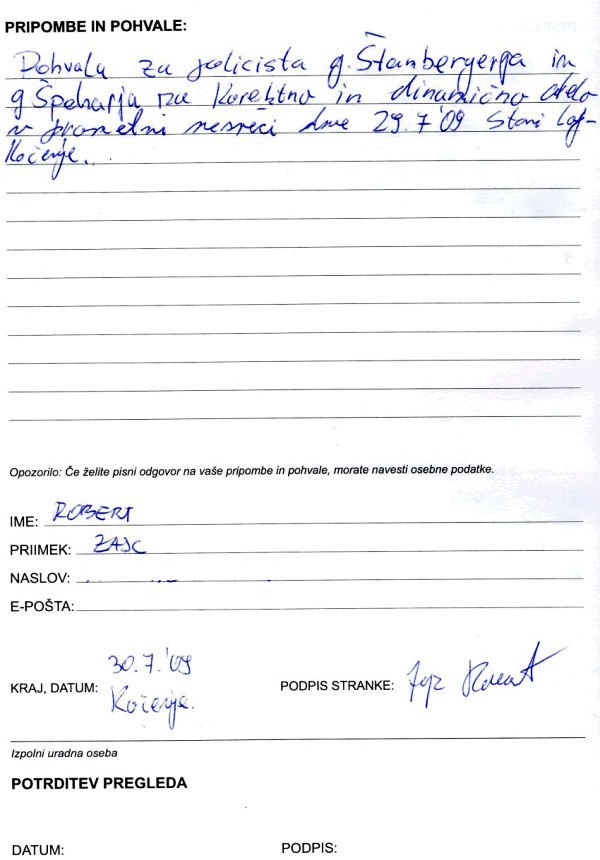 PRIPOMBE IN POHVALE:
Pohvala za policista g. Štanbergerja in
g Špeharja za korektno in dinamično delo
v prometni nesreči dne 29.7'09 Stari Log-
Kočevje.
Opozorilo: Če želite pisni odgovor na vaše pripombe in pohvale, morate navesti osebne podatke.
IME: ROBERT
PRIIMEK: ZAJC
NASLOV:
E-POŠTA:
30.7.'09
KRAJ, DATUM: Kočevje. PODPIS STRANKE:
Izpolni uradna oseba
POTRDITEV PREGLEDA
DATUM: PODPIS: